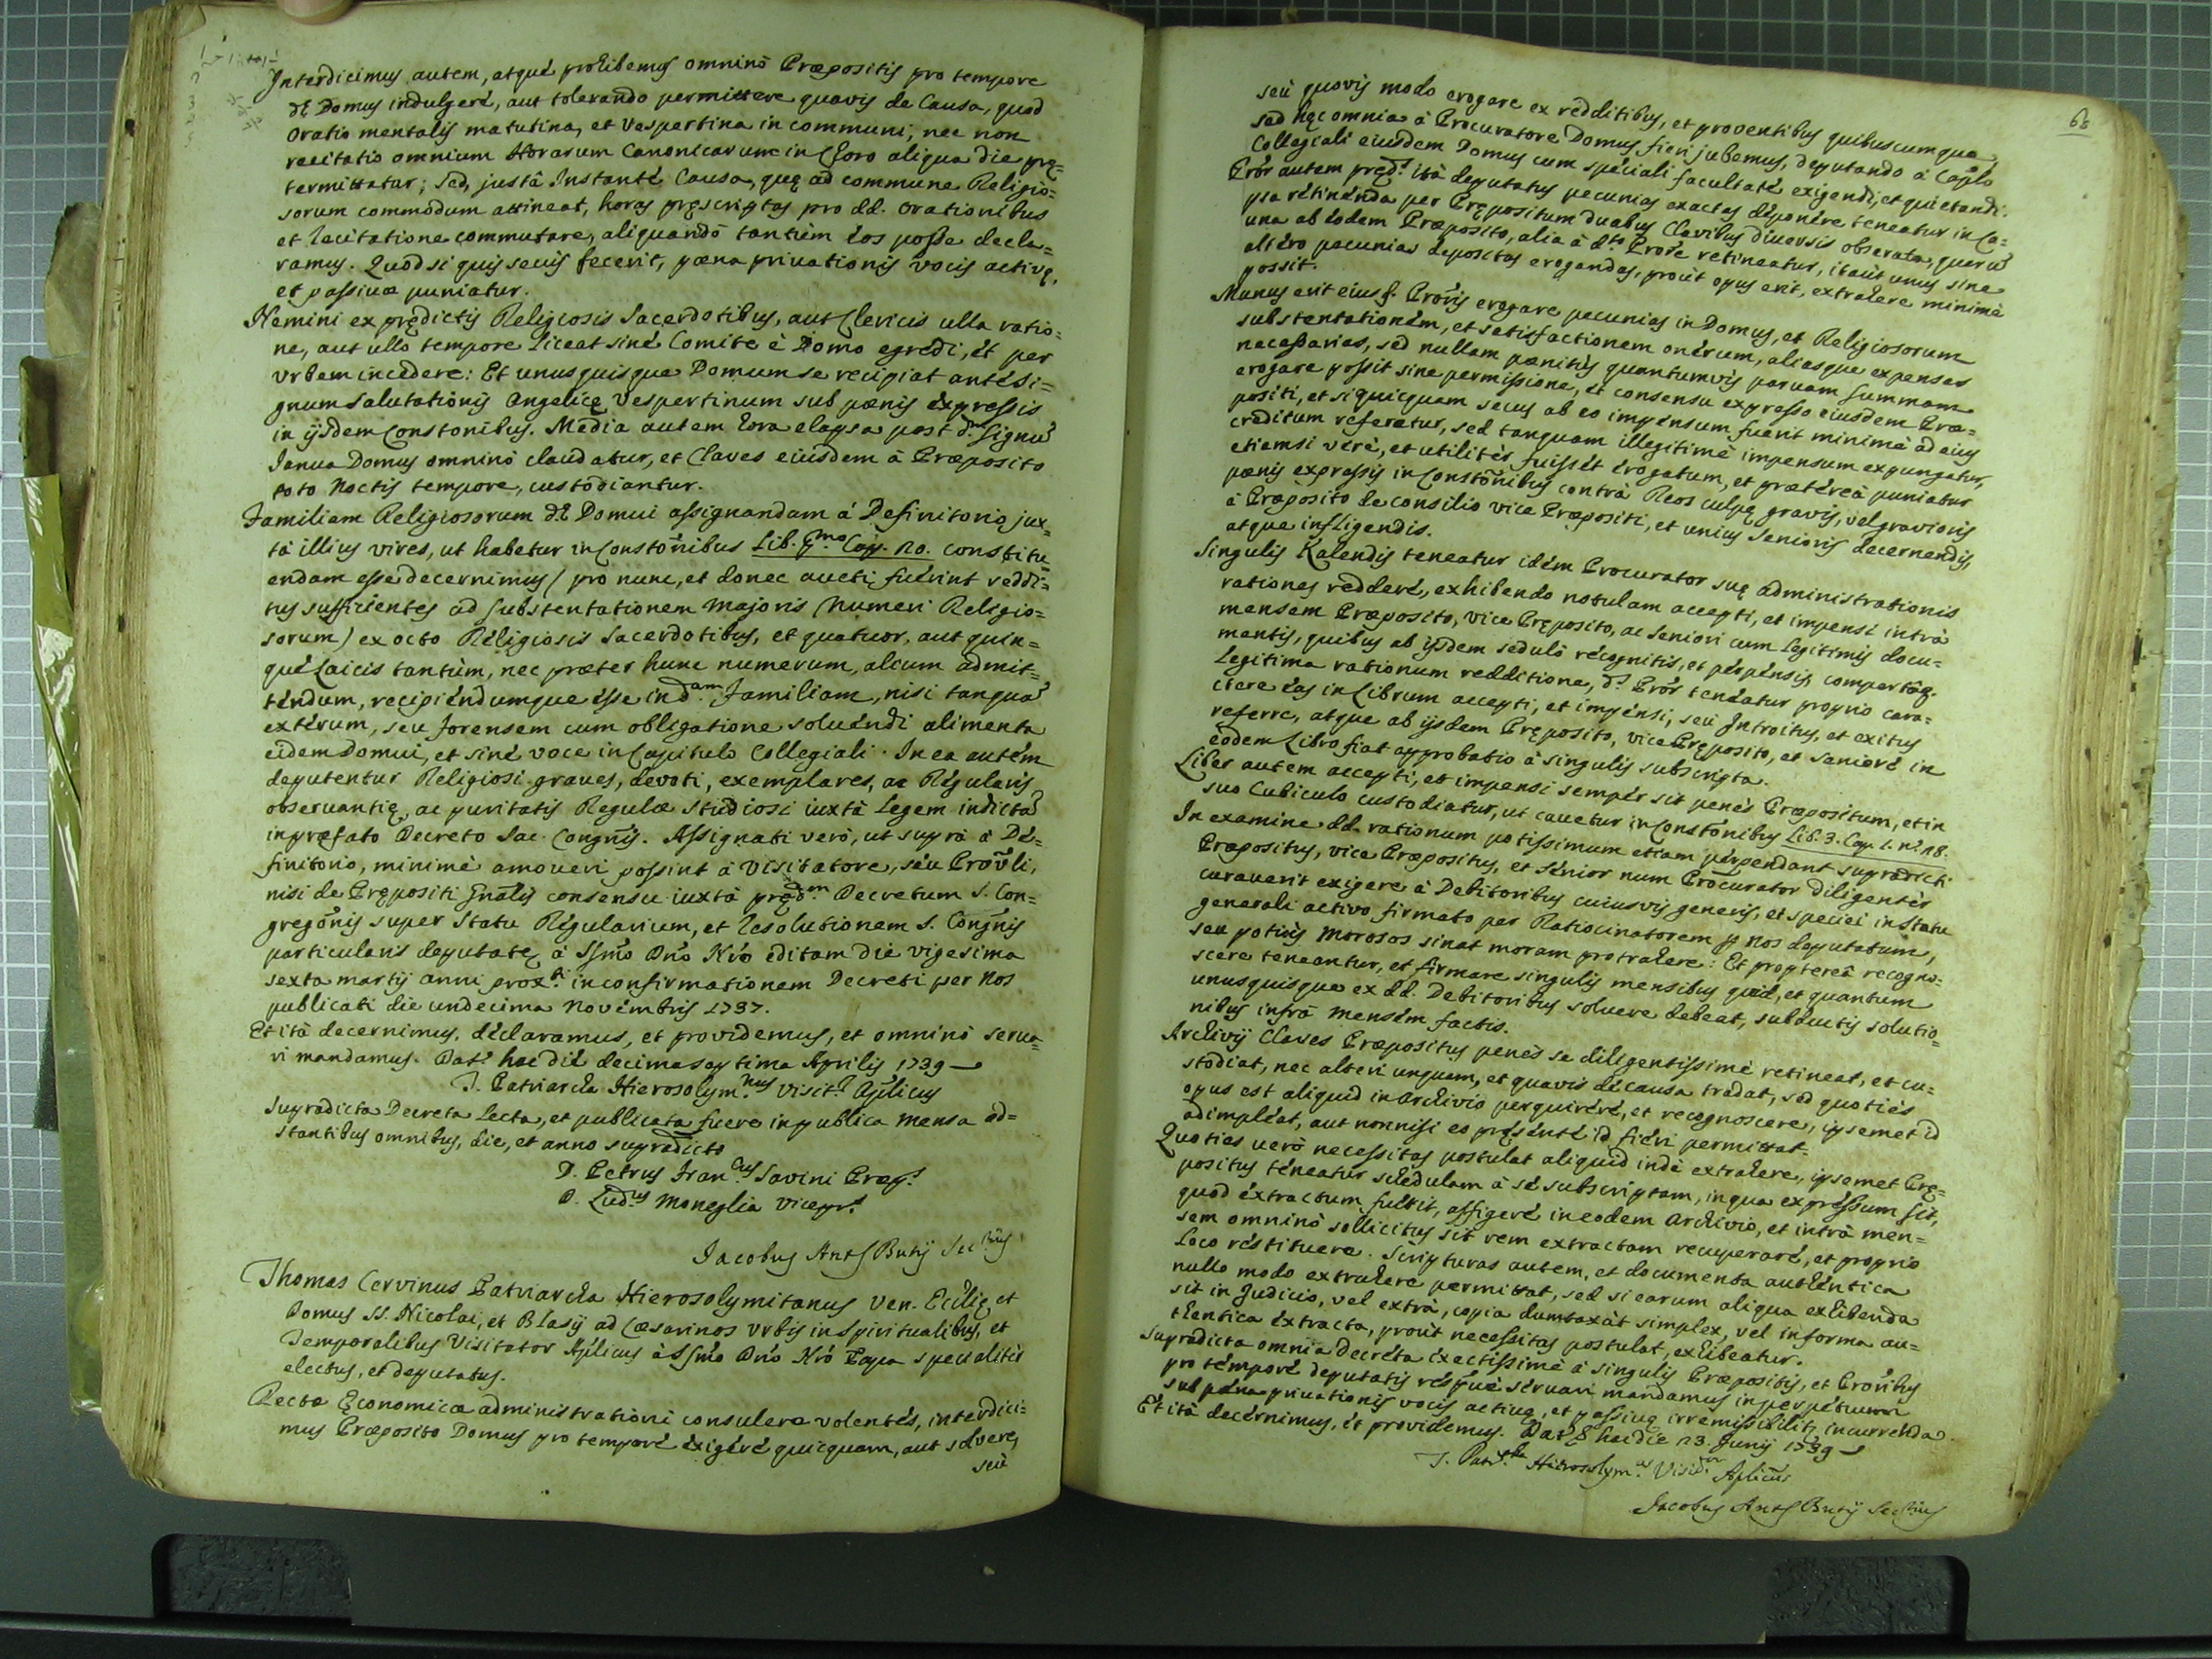 Interdicimus autem, atquè prohibemus omninò Præpositis pro tempore
dæ Domus indulgerè, aut tolerando permittere quavis de Causa, quod
oratio mentalis matutina, et Vespertina in communi, nec non
recitatio omnium Horarum Canonicarum in Choro aliqua die præ=
termittatur; sed, justâ Instantè Causa, quę ad commune Religio=
sorum commodum attineat, horas pręscriptas pro dd. orationibus
et recitatione commutare, aliquandò tantùm eos posse decla=
ramus. Quod si quis secùs fecerit, pæna privationis vocis activę,
et passivæ puniatur.
Nemini ex prędictis Religiosis Sacerdotibus, aut Clericis ulla ratio=
ne, aut ullo tempore liceat sinè Comite è Domo egredi, èt per
Vrbem incedere: Et unusquisque Domum se recipiat antè si=
gnum Salutationis Angelicę Vespertinum sub pænis expressis
in ijsdem Constonibus. Media autem hora elapsa post dm Signũ
Janua Domus omninò claudatur, et Claves eiusdem à Præposito
toto Noctis tempore, custodiantur.
Familiam Religiosorum dæ Domui assignandam á Definitorio jux=
tà illius vires, ut habetur in Constonibus Lib. Cap. 20. constitu=
endam esse decernimus (pro nunc, et donec aucti fuérint reddi=
tus sufficientes ad substentationem majoris Numeri Religio=
sorum) ex octo Religiosis Sacerdotibus, et quatuor, aut quin=
què Laicis tantùm, nec præter hunc numerum, alium admit=
téndum, recipiéndumque esse in dam Familiam, nisi tanquã
extérum, seu forensem cum obligatione soluéndi alimenta
eidem Domui, et sinè voce in Capitulo Collegiali. In ea autém
deputentur Religiosi graues, devoti, exemplares, ac Régularis
obseruantię, ac puritatis Regulæ studiosi iuxtà Legem indictã
in præfato Decreto Sac. Congñis. Assignati verò, ut suprà à De=
finitorio, minimè amoveri possint à Visitatore, séu Prov̄li,
nisi de Prępositi Gñalis consensu iuxtà prędm Decretum S. Con=
gregoñis super Statu Régularium, et resolutionem S. Congñis
particularis deputatę à SSmo Dño Nrõ editam die vigesima
sexta martij anni proxi in confirmationem Decreti per Nos
publicati die undecima Novémbris 1737.
Et ità decernimus, declaramus, et providemus, et omninò serua=
ri mandamus. Dat. hac diè decimaseptima Aprilis 1739
T. Patriarcha Hierosolym.nus Visit.r Aplicus
Supradicta Decreta lecta, et publicata fuere in publica mensa ad=
stantibus omnibus, die, et anno supradicto
D. Petrus Fran.cus Savini Præp.s
D. Lud.us Moneglia Vicepr.s
Jacobus Ants Butij Sec.rius
Thomas Cervinus Patriarcha Hierosolymitanus Ven. Ecclię, et
Domus SS. Nicolai, et Blasij ad Cæsarinos Vrbis in Spiritualibus, et
Temporalibus Visitator Aplicus à SSmo Dño Nrõ Papa specialitèr
electus, et deputatus.
Rectæ Economicæ administrationi consulere volentes, interdici=
mus Præposito Domus pro temporé exigeré quicquam, aut solvere,
seù
68
seù quovis modo erogare ex redditibus, et proventibus quibuscumque
sed hęc omnia à Procuratore Domus fieri jubemus, deputando à Caplo
Collegiali eiusdem Domus cum spéciali facultaté exigendi, et quietandi.
Prõr autem præd.s ità deputatus pecunias exactas déponére teneatur in Ca=
psa rétinénda per Pręposiitum duabus Clavibus diversis obserata, quarũ
una ab eodem Præposito, alia à dto Prorẽ retineatur, itaùt unus sine
altéro pecunias depositas erogandas, proùt opus erit, extrahere minimè
possit.
Munus erit eius f. Prõris erogare pecunias in Domus, et Religiosorum
substentationém, et satisfactionem onérum, aliasque expensas
necessarias, sed nullam pænitùs quantumvis parvam Summam
erogare possit sine permissione, et consensu expresso eiusdem Præ=
positi, et si quicquam secus ab eo impensum fuerit minimè ad eius
creditum referatur, sed tanquam illegitimè impensum expungatur,
etiamsi verè, et utilitèr fuissét érogatum, et prætéreà puniatur
pænis expressis in Constoñibus contrà Reos culpę gravis, vel gravioris
à Præposito de consilio vice Præpositi, et unius Senioris decernendis,
atque infligendis.
Singulis Kalendis teneatur idém Procurator suę administrationis
rationes redderé, exhibendo notulam accepti, et impensi intrà
mensem Præposito, Vice Pręposito, ac Seniori cum legitimis docu=
mentis, quibus ab ijsdem sedulò récognitis, et pérpénsis, compertâq.
legitima rationum redditione, d.s Prõr tenéatur proprio cara=
ctere éas in Librum accepti, et impénsi, seù Introitus, et exitus
referre, atque ab ijsdem Pręposito, vice Pręposito, et Senioré in
eodem Libro fiat approbatio à singulis subscripta.
Liber autem accepti, et impensi sempér sit penès Præpositum, et in
suo Cubiculo custodiatur, ut cavetur in Constoñibus Lib. 3. Cap. 1. n. 18.
In examine dd. rationum potissimum etiam pérpendant supradicti
Præpositus, vice Præpositus, et Sénior num Procurator diligentèr
curaverit exigere à Debitoribus cuiusvis generis, et speciei in Statu
generali activo, firmato per Ratiocinatorem p Nos deputatum,
seu potiùs morosos sinat moram protrahere: Et proptereà recogno=
scere teneantur, et firmare singulis mensibus quid, et quantum
unusquisque ex dd. Debitoribus soluere debeat, subductis solutio=
nibus infrà mensém factis.
Archivij Claves Præpositus penès se diligentissimè retineat, et cu=
stodiat, nec alteri unquam, et quavis de causa tradat, sed quotiès
opus est aliquid in Archivio perquiréré, et recognoscere, ipsemet id
adimpléat, aut nonnisi eo pręsénté id fiéri permittat.
Quoties verò necessitas postulat aliquid indè extrahere, ipsemet Pre=
positus téneatur schedulam à sé subscriptam, in qua expréssum sit,
quod extractum fuérit, affigeré in eodem Archivio, et intrà men=
sem omninò sollicitus sit rem extractam recuperaré, et proprio
loco réstituere. Scripturas autem, et documenta authéntica
nullo modo extrahere permittat, sed si earum aliqua exhibenda
sit in Judicio, vel extrà, copia dumtaxàt simplex, vel in forma au=
thentica éxtracta, proùt necessitas postulat, exhibeatur.
Supradicta omnia Decréta éxactissimè à singulis Præpositis, et Prorĩbus
pro témporé deputatis réspvè séruari mandamus in perpétuum
sub pæna privationis vocis activę, et passivę irremissibilit. incurrenda.
Et ità decérnimus, ét providemus. Dat. hac die 23. Junij 1739
T. Patr.cha Hierosolym.us Visit.or Aplicus
Jacobus Ants Butij Sec.rius